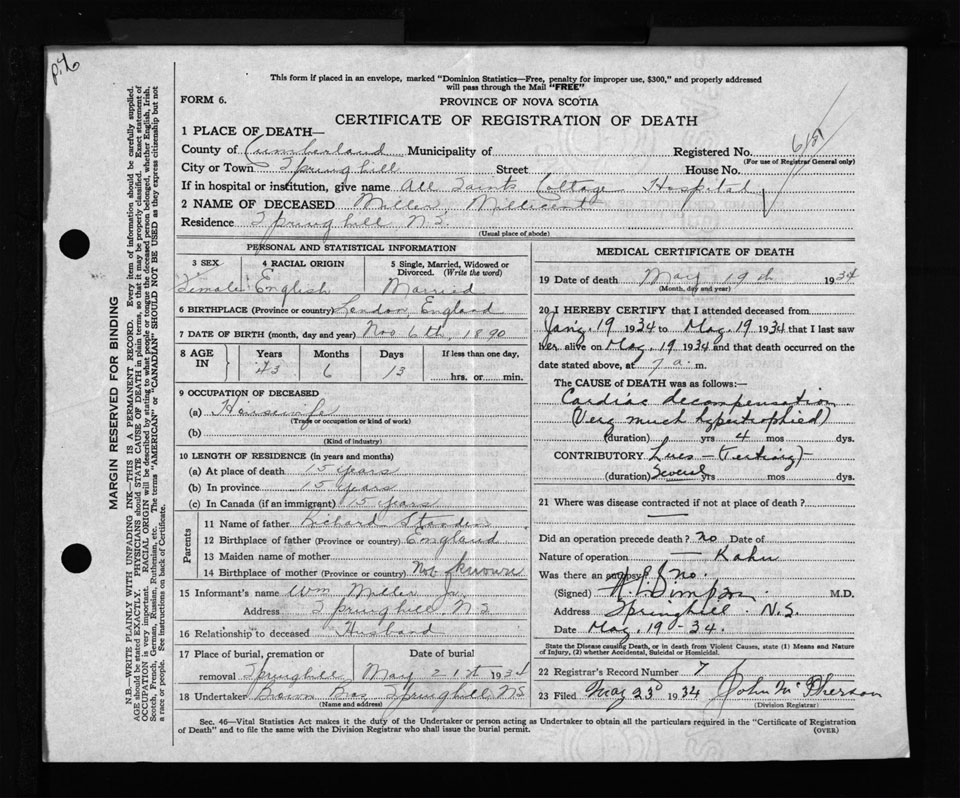 p.2
This form if placed in an envelope, marked "Dominion Statistics—Free, penalty for improper use, $300," and properly addressed
will pass through the Mail "FREE"
FORM 6.
PROVINCE OF NOVA SCOTIA
CERTIFICATE OF REGISTRATION OF DEATH
1 PLACE OF DEATH—
County of Cumberland Municipality of Registered No.
(For use of Registrar General only)
City or Town Springhill Street House No.
If in hospital or institution, give name All Saints Cottage Hospital
2 NAME OF DECEASED Miller, Millicent
Residence Springhill N.S.
(Usual place of abode)
PERSONAL AND STATISTICAL INFORMATION
3 SEX 4 RACIAL ORIGIN 5 Single, Married, Widowed or
Divorced. (Write the word)
Female English Married
6 BIRTHPLACE (Province or country) London, England
7 DATE OF BIRTH (month, day and year) Nov 6th, 1890
8 AGE IN Years Months Days If less than one day,
43 6 13 hrs. or min.
9 OCCUPATION OF DECEASED
(a) Housewife
(Trade or occupation or kind of work)
(b)
(Kind of industry)
10 LENGTH OF RESIDENCE (in years and months)
(a) At place of death 15 years
(b) In province 15 years
(c) In Canada (if an immigrant) 15 years
Parents
11 Name of father Richard
12 Birthplace of father (Province or country) England
13 Maiden name of mother
14 Birthplace of mother (Province or country) Not known
15 Informant's name Wm Miller Jr.
Address Springhill N.S.
16 Relationship to deceased Husband
17 Place of burial, cremation or Date of burial
removal Springhill May 21st 1934
18 Undertaker Brown Bros Springhill NS
(Name and address)
MEDICAL CERTIFICATE OF DEATH
19 Date of death May 19th 1934
(Month, day and year)
20 I HEREBY CERTIFY that I attended deceased from
Jany. 19 1934 to May. 19 1934 that I last saw
her alive on May. 19 1934 and that death occurred on the
date stated above, at 7 a. m.
The CAUSE OF DEATH was as follows:—
Cardiac decompensation
(Very much hypertrophied)
(duration) yrs 4 mos dys.
CONTRIBUTORY Lues - (Tertiary)
(duration) Several yrs mos dys.
21 Where was disease contracted if not at place of death?
Did an operation precede death? no Date of
Nature of operation — Kahn
Was there an autopsy? no.
(Signed) Simpson M.D.
Address Springhill. N.S.
Date May. 19-34.
State the Disease causing Death, or in death from Violent Causes, state (1) Means and Nature
of Injury, (2) whether Accidental, Suicidal or Homicidal.
22 Registrar's Record Number 7
23 Filed May 23d 1934 John McPherson
(Division Registrar)
Sec. 46—Vital Statistics Act makes it the duty of the Undertaker or person acting as Undertaker to obtain all the particulars required in the "Certificate of Registration
of Death" and to file the same with the Division Registrar who shall issue the burial permit. (OVER)
MARGIN RESERVED FOR BINDING
N.B.—WRITE PLAINLY WITH UNFADING INK—THIS IS A PERMANENT RECORD. Every item of information should be carefully supplied.
AGE should be stated EXACTLY. PHYSICIANS should STATE CAUSE OF DEATH in plain terms, so that it may be properly classified. Exact statement of
OCCUPATION is very important. RACIAL ORIGIN will be described by stating to what people or tongue the deceased person belonged, whether English, Irish,
Scotch, French, German, Russian, Ruthenian, etc. The terms "AMERICAN" or "CANADIAN" SHOULD NOT BE USED as they express citizenship but not
a race or people. See instructions on back of Certificate.